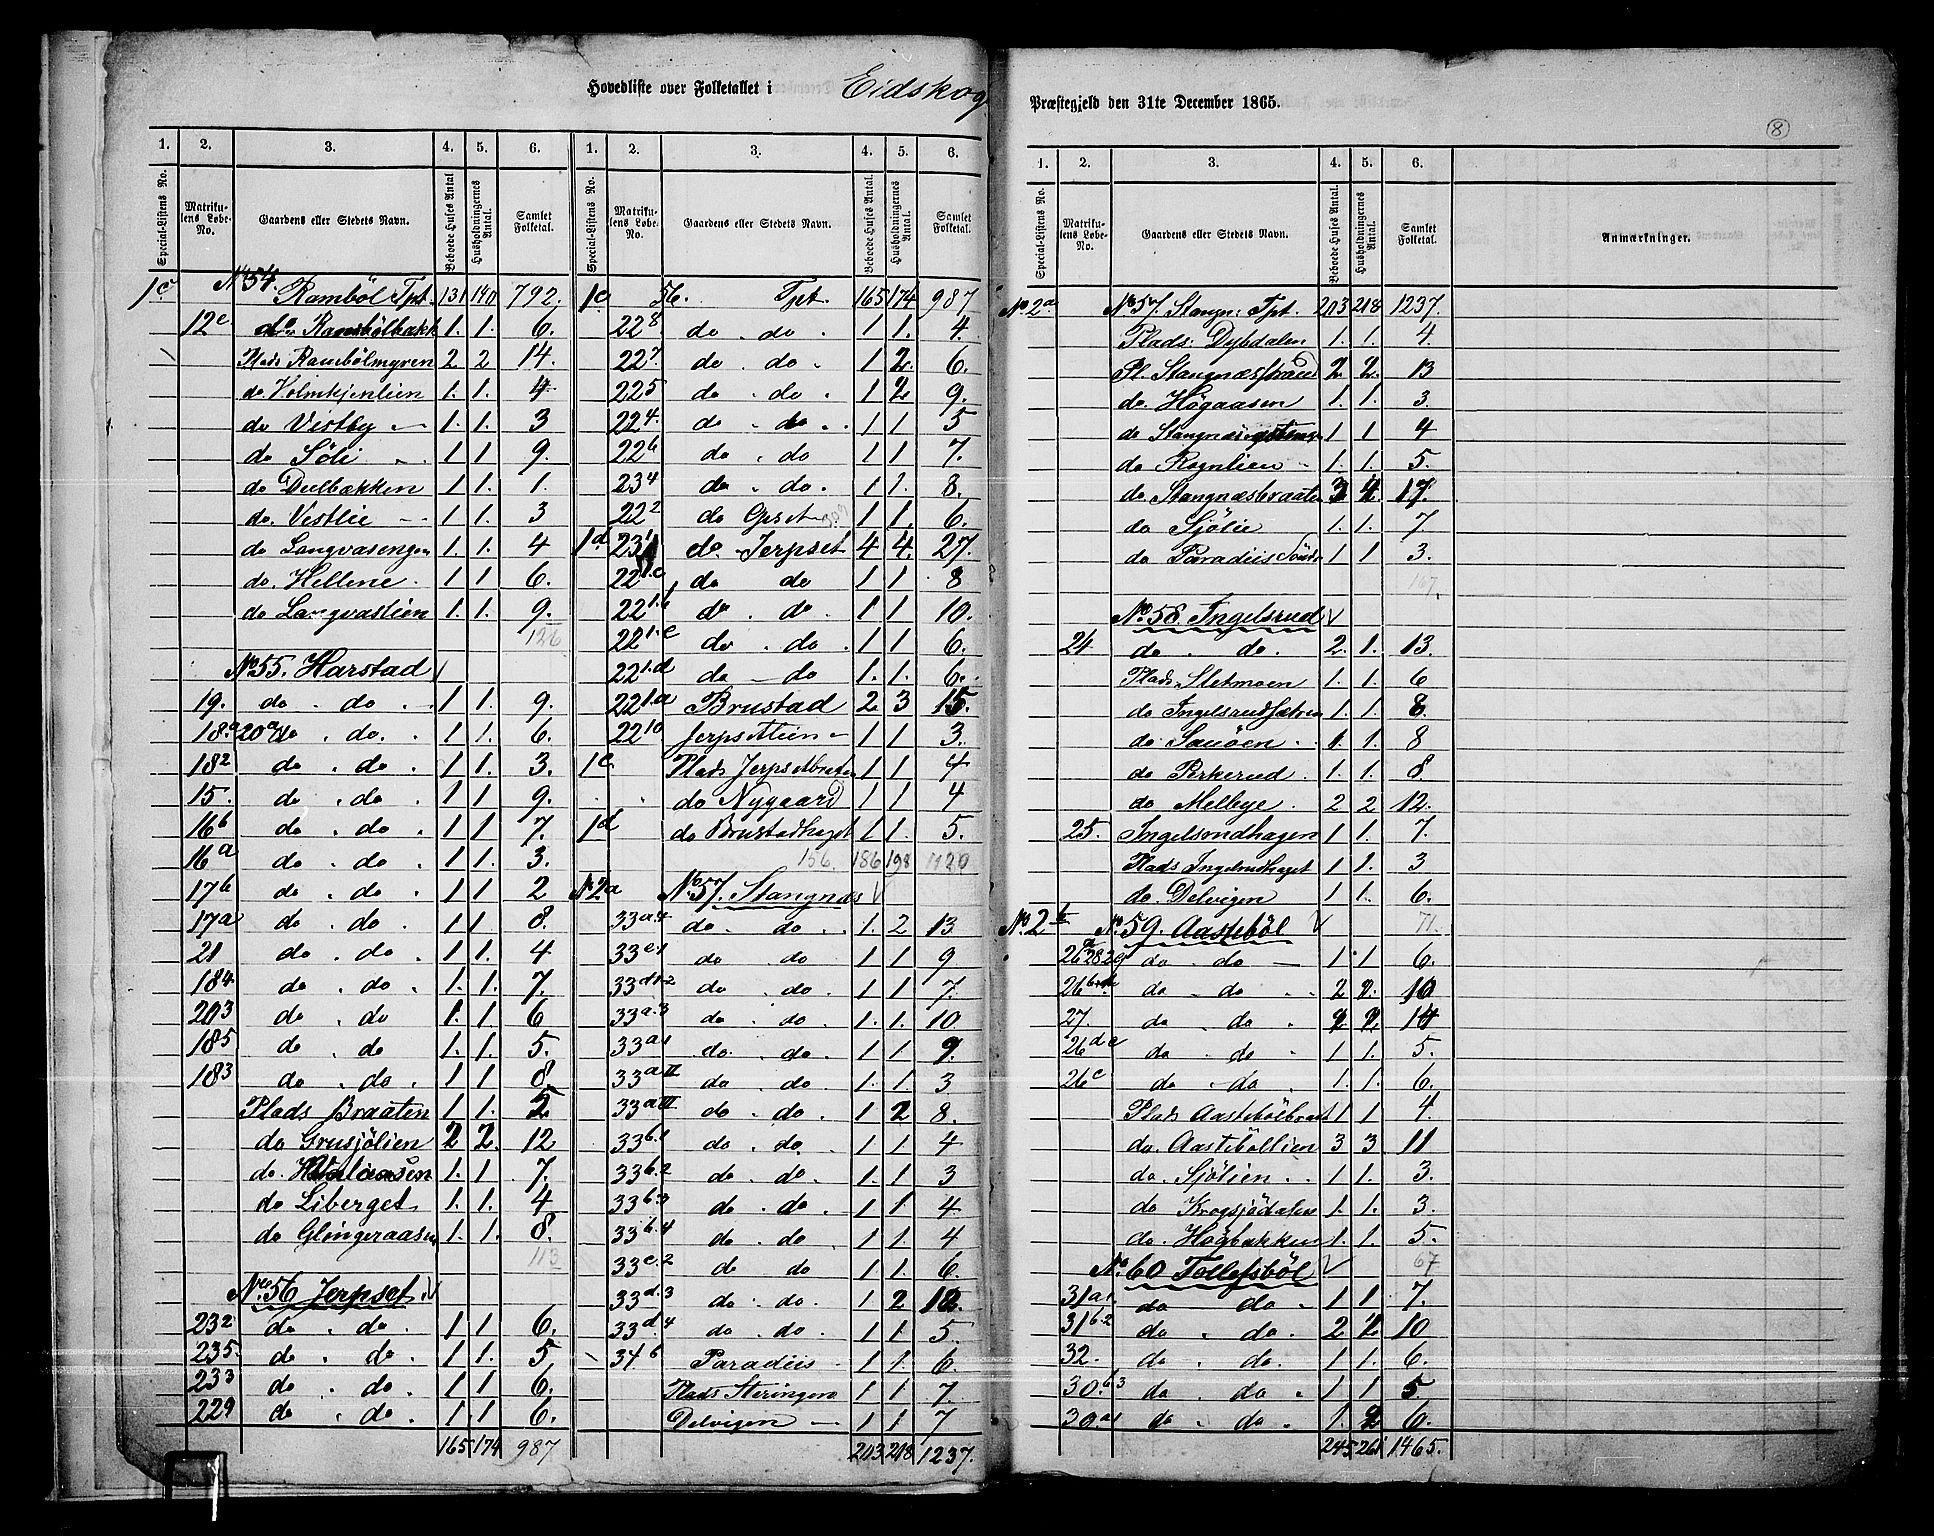 Hovedliste over Folketallet i Eidskog
Præstegjeld den 31te December 1865.
8
1. 2. 3. 4. 5. 6. 1. 2. 3. 4. 5. 6.
Special-Listens No. Matrikulens Løbe-No. Gaardens eller Stedets Navn. Beboede Huses Antal. Husholdningernes Antal. Samlet Folketal. Special-Listens No. Matrikulens Løbe-No. Gaardens eller Stedets Navn. Beboede Huses Antal. Husholdningernes Antal. Samlet Folketal.
1c No 54. Ramböl Tpt. 131 140 792.
12c do Rambölbakk 1. 1. 6.
Plads Rambölmyren 2 2 14.
do Holmtjenlien 1. 1. 4
do Vestby 1. 1. 3
do Söli 1 1 9.
do Dulbækken 1 1. 1.
do. Vestlie 1 1. 3
do Langvasengen 1. 1. 4
do. Hellene 1 1 6.
do Langvastien 1. 1. 9.
126
No 55. Harstad
19. do. do. 1 1 9.
18.a 20a do. do. 1 1. 6.
18 2 do. do. 1 1. 3.
15. do. do. 1 1 9.
16b do. do. 1 1 7.
16a do. do. 1 1 3.
17b do. do. 1 1 2
17a do. do. 1 1 8.
21 do. do. 1 1 4
18 4 do. do. 1 1. 7.
20 3 do. do 1. 1. 6
18 5 do. do 1. 1. 5.
18 3 do. do. 1 1 8.
Plads Braaten 1 1. 5.
do Grusjölien 2 2. 12
do. 1. 1. 7.
do Liberget 1. 1. 4
do Glöngeraasen 1. 1. 8.
113
No 56 Jerpset.
23 2 do. do. 1 1 6.
23 5. do. do. 1 1. 5
23 3 do. do. 1 1 6.
22 9 do. do. 1. 1 6.
165 174 987
1c 56. Tpt. 165 174 987
22 8 do do. 1 1. 4.
22 7 do. do. 1 2. 6.
22 5 do. do. 1 2 9.
22 4. do. do. 1 1 5
22 6 do. do 1 1 7.
23 4 do. do. 1 1. 8.
22 2 do Opset 1 1. 6.
1d 23 1 do. Jerpset 4 4. 27.
22 1.c do do 1 1 8
22 1.b do. do. 1 1 10.
22 1.e do. do. 1 1 6.
22 1.d do do 1. 1. 6.
22 1.a Brustad 2. 3 15.
22 10 Jerpsetlien 1 1 3.
1c Plads Jerpsetbraten 1 1 4
do Nygaard 1 1 4
1d do Brustadhaget 1 1. 5.
156. 186 198 1120
No 2a No 57. Stangnæs
33 a.4 do. do. 1. 2 13
33 c.1 do do 1 1 9
33 d 1-2 do. do. 1 1 7.
33 a.3 do do. 1. 1. 10
33 a 1 do. do. 1 1 9.
33 a II do. do. 1. 1 3
33 a III do. do. 1 2 8.
33 b.1 do. do. 1 1 4
33 b.2 do. do. 1 1 3
33 b.3 do. do. 1 1 4.
33 b.4 do. do. 1 1 4
33 c.2 do do 1 1. 6.
33 d.3 do. do. 1 2 12.
33 d.4 do. do. 1 1. 5.
34 b Paradiis 1 1. 6.
Plads Steringen 1 1 7.
Delvigen 1 1 7
203 218 1237.
1. 2. 3. 4. 5. 6.
Special-Listens No. Matrikulens Løbe-No. Gaardens eller Stedets Navn. Beboede Huses Antal. Husholdningernes Antal. Samlet Folketal. Anmærkninger.
No 2a No 57. Stangn: Tpt. 203 218 1237.
Plads: Dybdalen 1. 1. 4.
Pl. Stangnæsstrand 2 2. 13
do. Högaasen 1. 1. 3.
do 1 1 4
do Rognlien 1. 1. 5.
do Stangnæsbraaten 3 4. 17.
do Sjölie 1. 1. 7
do Paradiis 1 1 3.
167.
No 58. Ingelsrud
24 do. do. 2. 1. 13.
Plads Sletmoen 1. 1. 6
do Ingelsrudsætren 1. 1. 8.
do 1. 1. 8
do Perkerud 1. 1. 8.
do Melbye. 2 2 12.
25. Ingelsrudhagen 1 1. 7.
Plads Ingelsrudhaget 1 1. 3
do. Delvigen 1 1. 6.
No 2b No 59. Aastebøl 71.
26a 28 29 do. do. 1 1 6.
26 do. do. 2 2. 10
27. do. do. 2 2. 14
26 d e do do 1 1. 5.
26 c do. do. 1. 1. 6.
Plads Aastebölbraat 1 1 4
do. Aastiböllien 3 3. 11
do. Sjölien 1 1. 3.
do Krogsjödalen 1. 1. 3.
do. Høgbakken 1. 1. 5.
No 60 Tollefsböl 67
31 a 1 do do 1 1 7.
31 b.2 do. do. 2 2 10
32. do. do. 1 1. 6.
30.b3 do. do 1 1 5
30.a1 do. do. 1. 2 6.
245 261 1465.